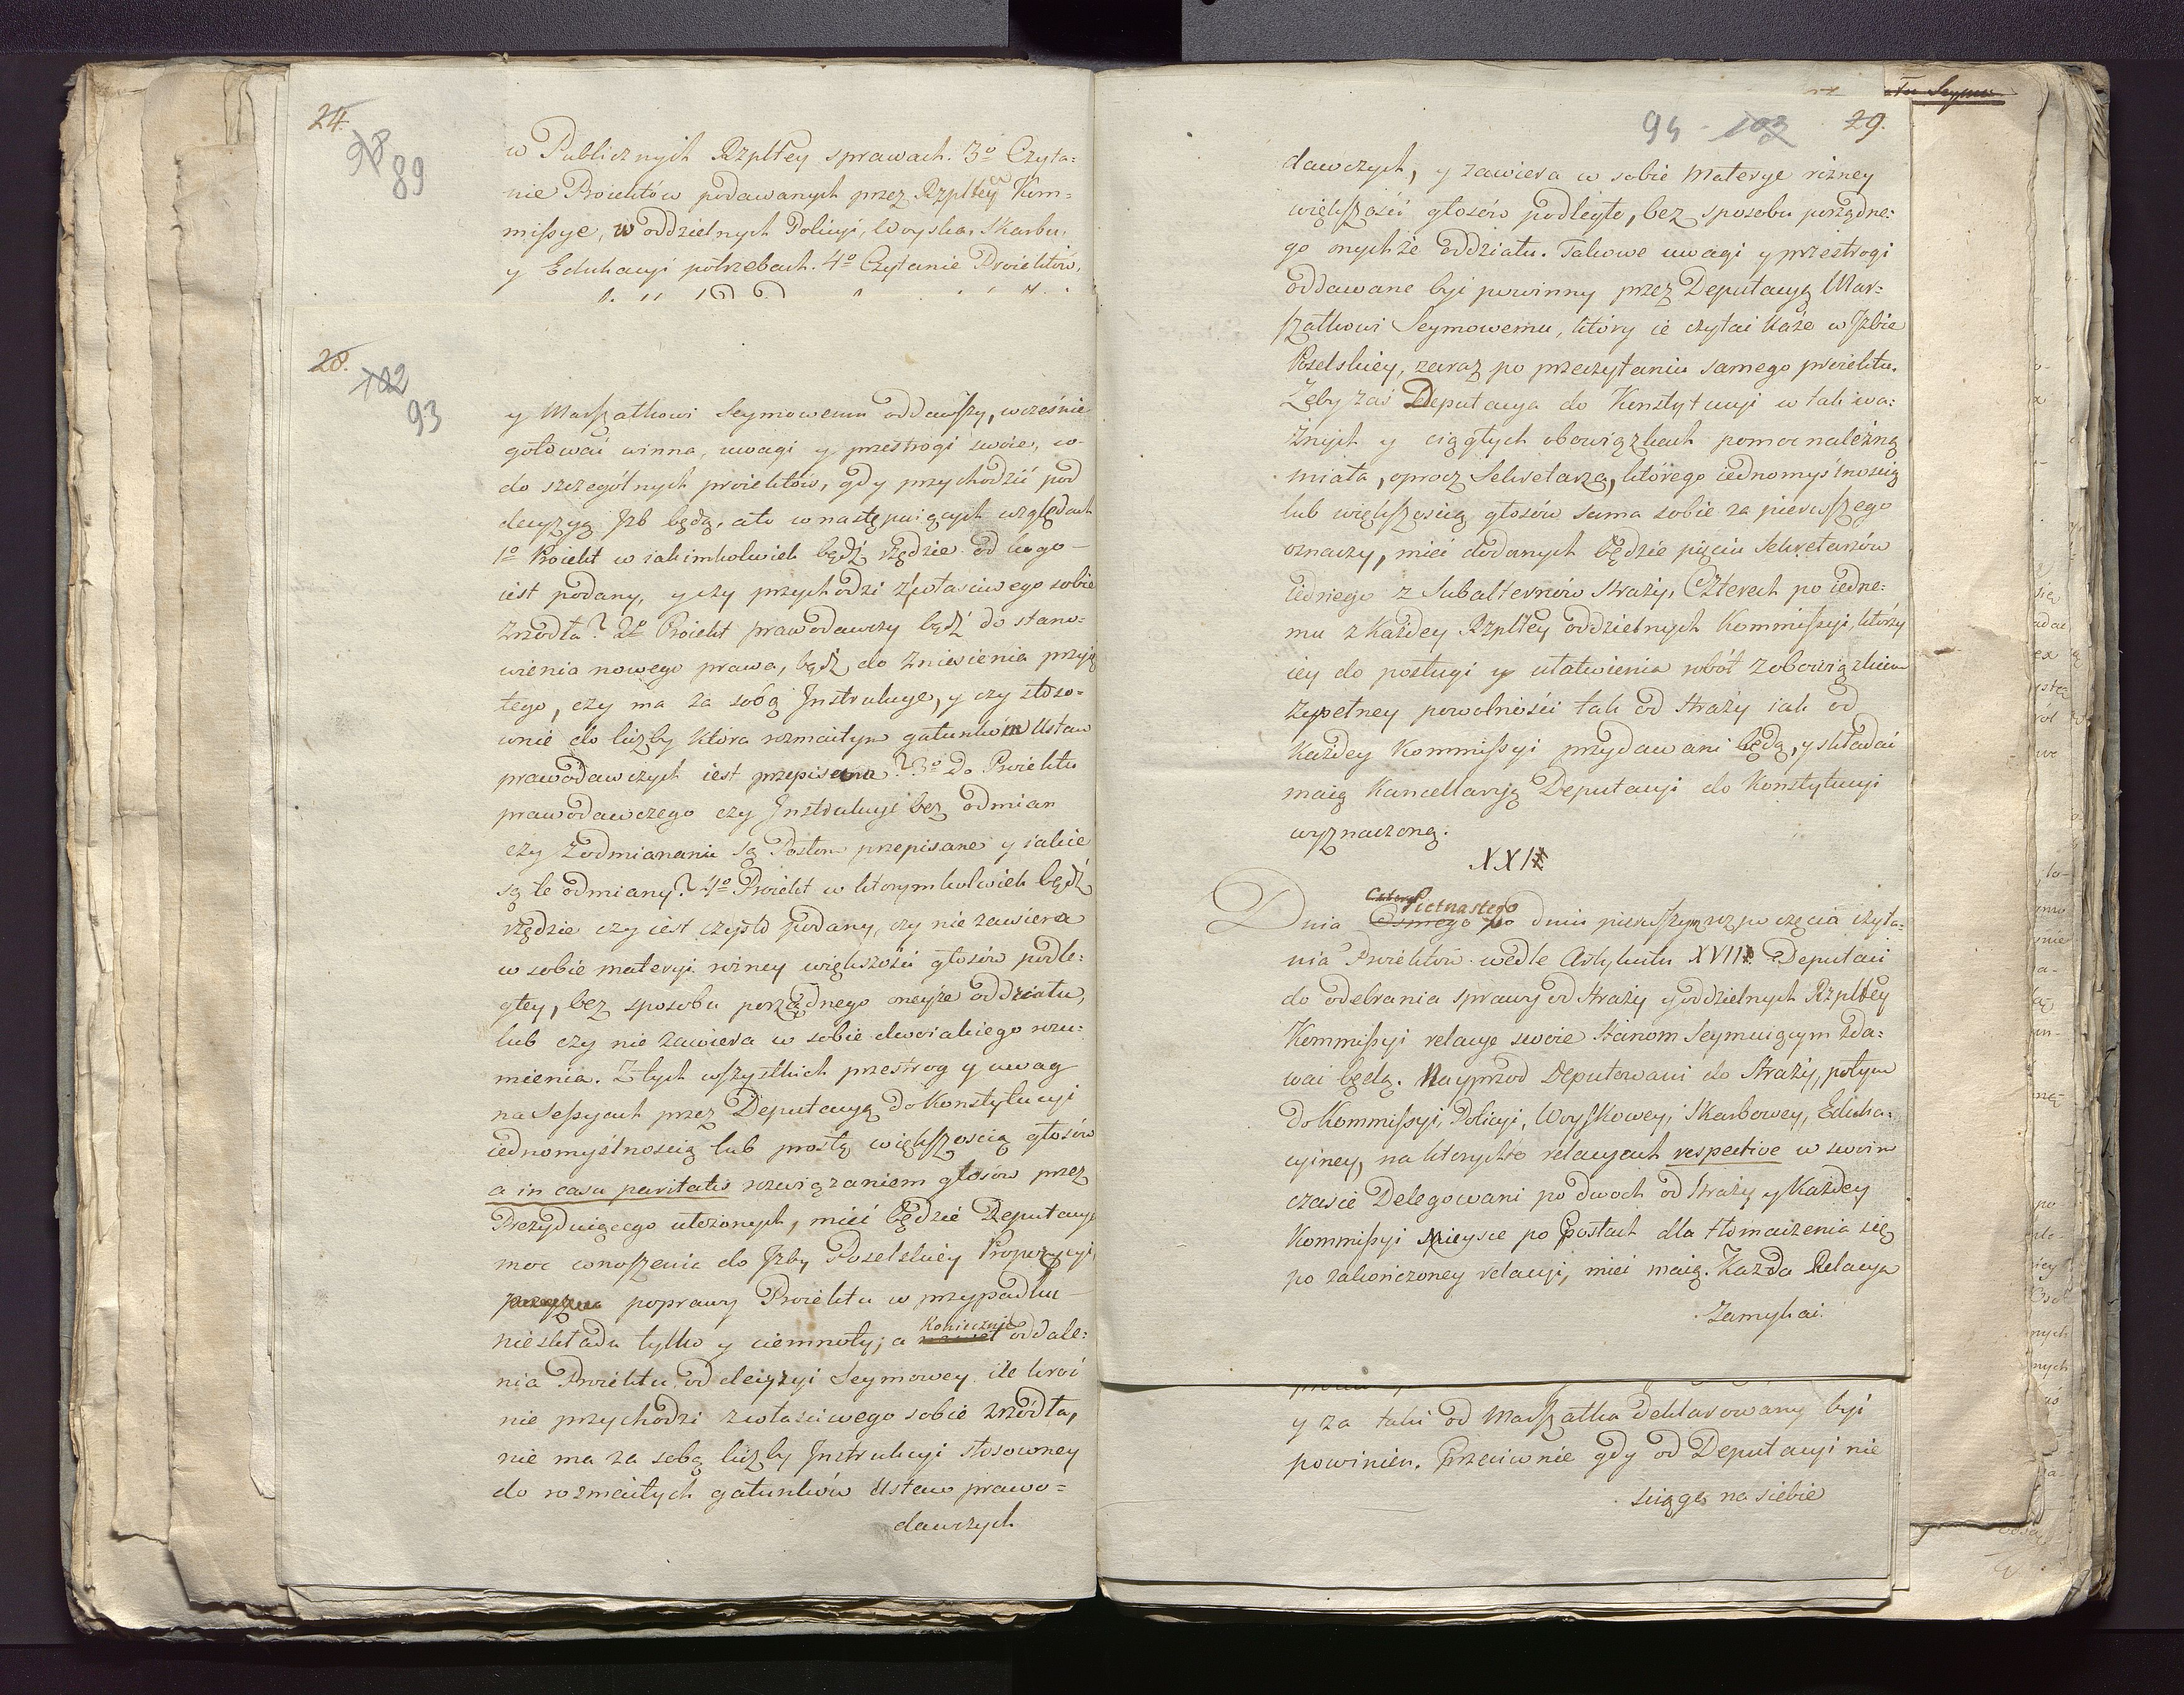 24.
98
89
w Publicznych Rzpltey sprawach. 3º Czyta=
nie Proiektów podawanych przez Rzpltey Kom=
missye, w oddzielnych Policyi, Woyska, Skarbu,
y Edukacyi potrzebach. 4º Czytanie Proiektów,
28.
102
93
y Marszałkowi Seymowemu oddawszy, wcześnie
gotować winna, uwagi y przestrogi swoie, co
do szczególnych proiektów, gdy przychodzić pod
decyzyą Izb będą, a to w następuiących względach
1º Proiekt w iakimkolwiek bądź rzędzie od kogo
iest podany, y czy przychodzi z właściwego sobie
źrzodła? 2º Proiekt prawodawczy bądź do stano=
wienia nowego prawa, bądź do zniesienia przyię
tego, czy ma za sobą Instrukcye, y czy stoso=
wnie do liczby która rozmaitym gatunkóm Ustaw
prawodawczych iest przepisana? 3º Do Proiektu
prawodawczego czy Instrukcye bez odmian
czy z odmianami są Posłom przepisane y iakie
są te odmiany? 4º Proiekt w ktorymkolwiek bądź
rzędzie czy iest czysto podany, czy nie zawiera
w sobie materyi rożney większości głosów podle=
głey, bez sposobu porządnego oneyże oddziału,
lub czy nie zawiera w sobie dwoiakiego rozu=
mienia. Z tych wszystkich przestrog y uwag
na Sessyach przez Deputacyą do Konstytucyi
iednomyślnością lub prostą większością głosów
a in casu paritatis rozwiązaniem głosów przez
Prezyduiącego ułożonych, mieć będzie Deputacya
moc wnoszenia do Izby Poselskiey Propozycyi
poprawy Proiektu w przypadku
nieskładu tylko y ciemnoty; a
Koniecznie
oddale=
nia Proiektu od decyzyi Seymowey. ile kroć
nie przychodzi z właściwego sobie źrzódła,
nie ma za sobą liczby Instrukcyi stosowney
do rozmaitych gatunków Ustaw prawo=
dawczych
Seymu
94 103 29.
dawczych, y zawiera w sobie Materye rożney
większości głosów podległe, bez sposobu porządne=
go onychże oddziału. Takowe uwagi y przestrogi
oddawane być powinny przez Deputacyą Mar=
szałkowi Seymowemu, który ie czytać każe w Izbie
Poselskiey, zaraz po przeczytaniu samego proiektu.
Żeby zaś Deputacya do Konstytucyi w tak wa=
żnych y ciągłych obowiązkach pomoc należną
miała, oprocz Sekretarza, którego iednomyślnością
lub większością głosów sama sobie za pierwszego
oznaczy, mieć dodanych będzie pięciu Sekretarzów
iednego z Subalternów Straży, Czterech po iedne=
mu z Każdey Rzpltey oddzielnych Kommissyi, którzy
iey do posługi y ułatwienia robót z obowiązkiem
zupełney powolności tak od Straży iak od
Każdey Kommissyi przydawani będą, y składać
maią Kancellaryą Deputacyi do Konstytucyi
wyznaczoną.
XXI
Piętnastego
Dnia Osmego po dniu pierwszym rozpoczęcia czyta=
nia Proiektów wedle Artykułu XVII Deputaci
do odebrania sprawy od Straży y oddzielnych Rzpltey
Kommissyi relacye swoie Stanom Seymuiącym zda=
wać będą. Nayprzod Deputowani do Straży, potym
do Kommissyi, Policyi, Woyskowey, Skarbowey, Eduka=
cyiney, na których to relacyach respective w swoim
czasie Delegowani po dwoch od Straży y Każdey
Kommissyi Mieysce po Posłach dla tłomaczenia się
po zakończoney relacyi, mieć maią. Każda Relacya
Zamykać.
y za taki od Marszałka deklarowany być
powinien. Przeciwnie gdy od Deputacyi nie
ściągę na siebie